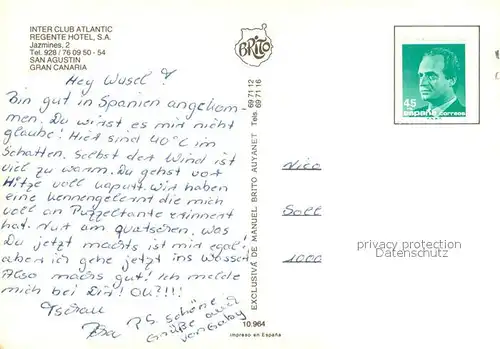 INTER CLUB ATLANTIC
REGENTE HOTEL, S.A.
Jazmines, 2
Tel. 928 / 76 09 50 - 54
SAN AGUSTIN
GRAN CANARIA
BRITO
Hey Wusel!
Bin gut in Spanien angekom-
men. Du wirst es mir nicht
glaube! Hier sind 40°C im
Schatten. Selbst der Wind ist
viel zu warm. Du gehst vor
Hitze voll kaputt. Wir haben
eine kennengelernt die mich
voll an Puzzeltante erinnert
hat. Nur am quatschen. Was
Du jetzt machts ist mir egal!
aber ich gehe jetzt ins Wasser
Also machs gut! Ich melde
mich bei Dir! Ok?!!!
Tschau
P.S. Schöne
Grüße auch
von Gaby
EXCLUSIVA DE MANUEL BRITO AUYANET Tels. 69 71 12
69 71 16
10.964
Impreso en España
45
españa correos
Nico
Soll
1000
privacy protection